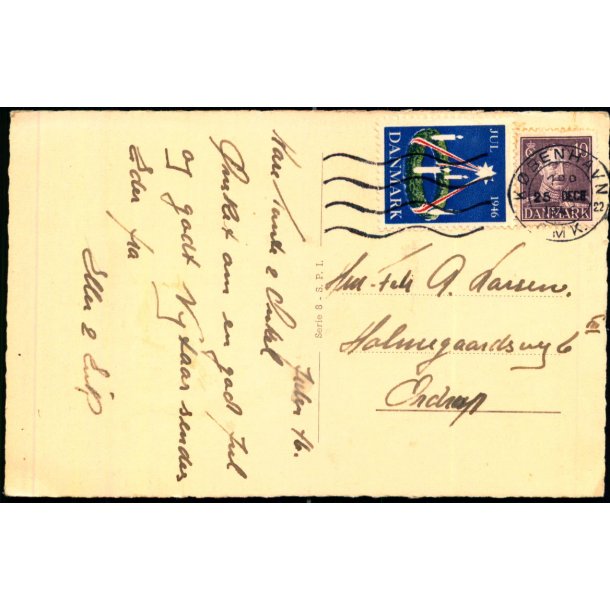 Kære Tante & Onkel Julen 46.
Ønsket om en god Jul
og godt Nytaar sendes
Eder fra
Ellen &
Serie 8 - S. P. I.
JUL
1946
DANMARK
10
DANMARK
KØBENHAVN
25 DEC
22
OMK.
A. Larsen.
Holmegaardsvej 6
Ordrup